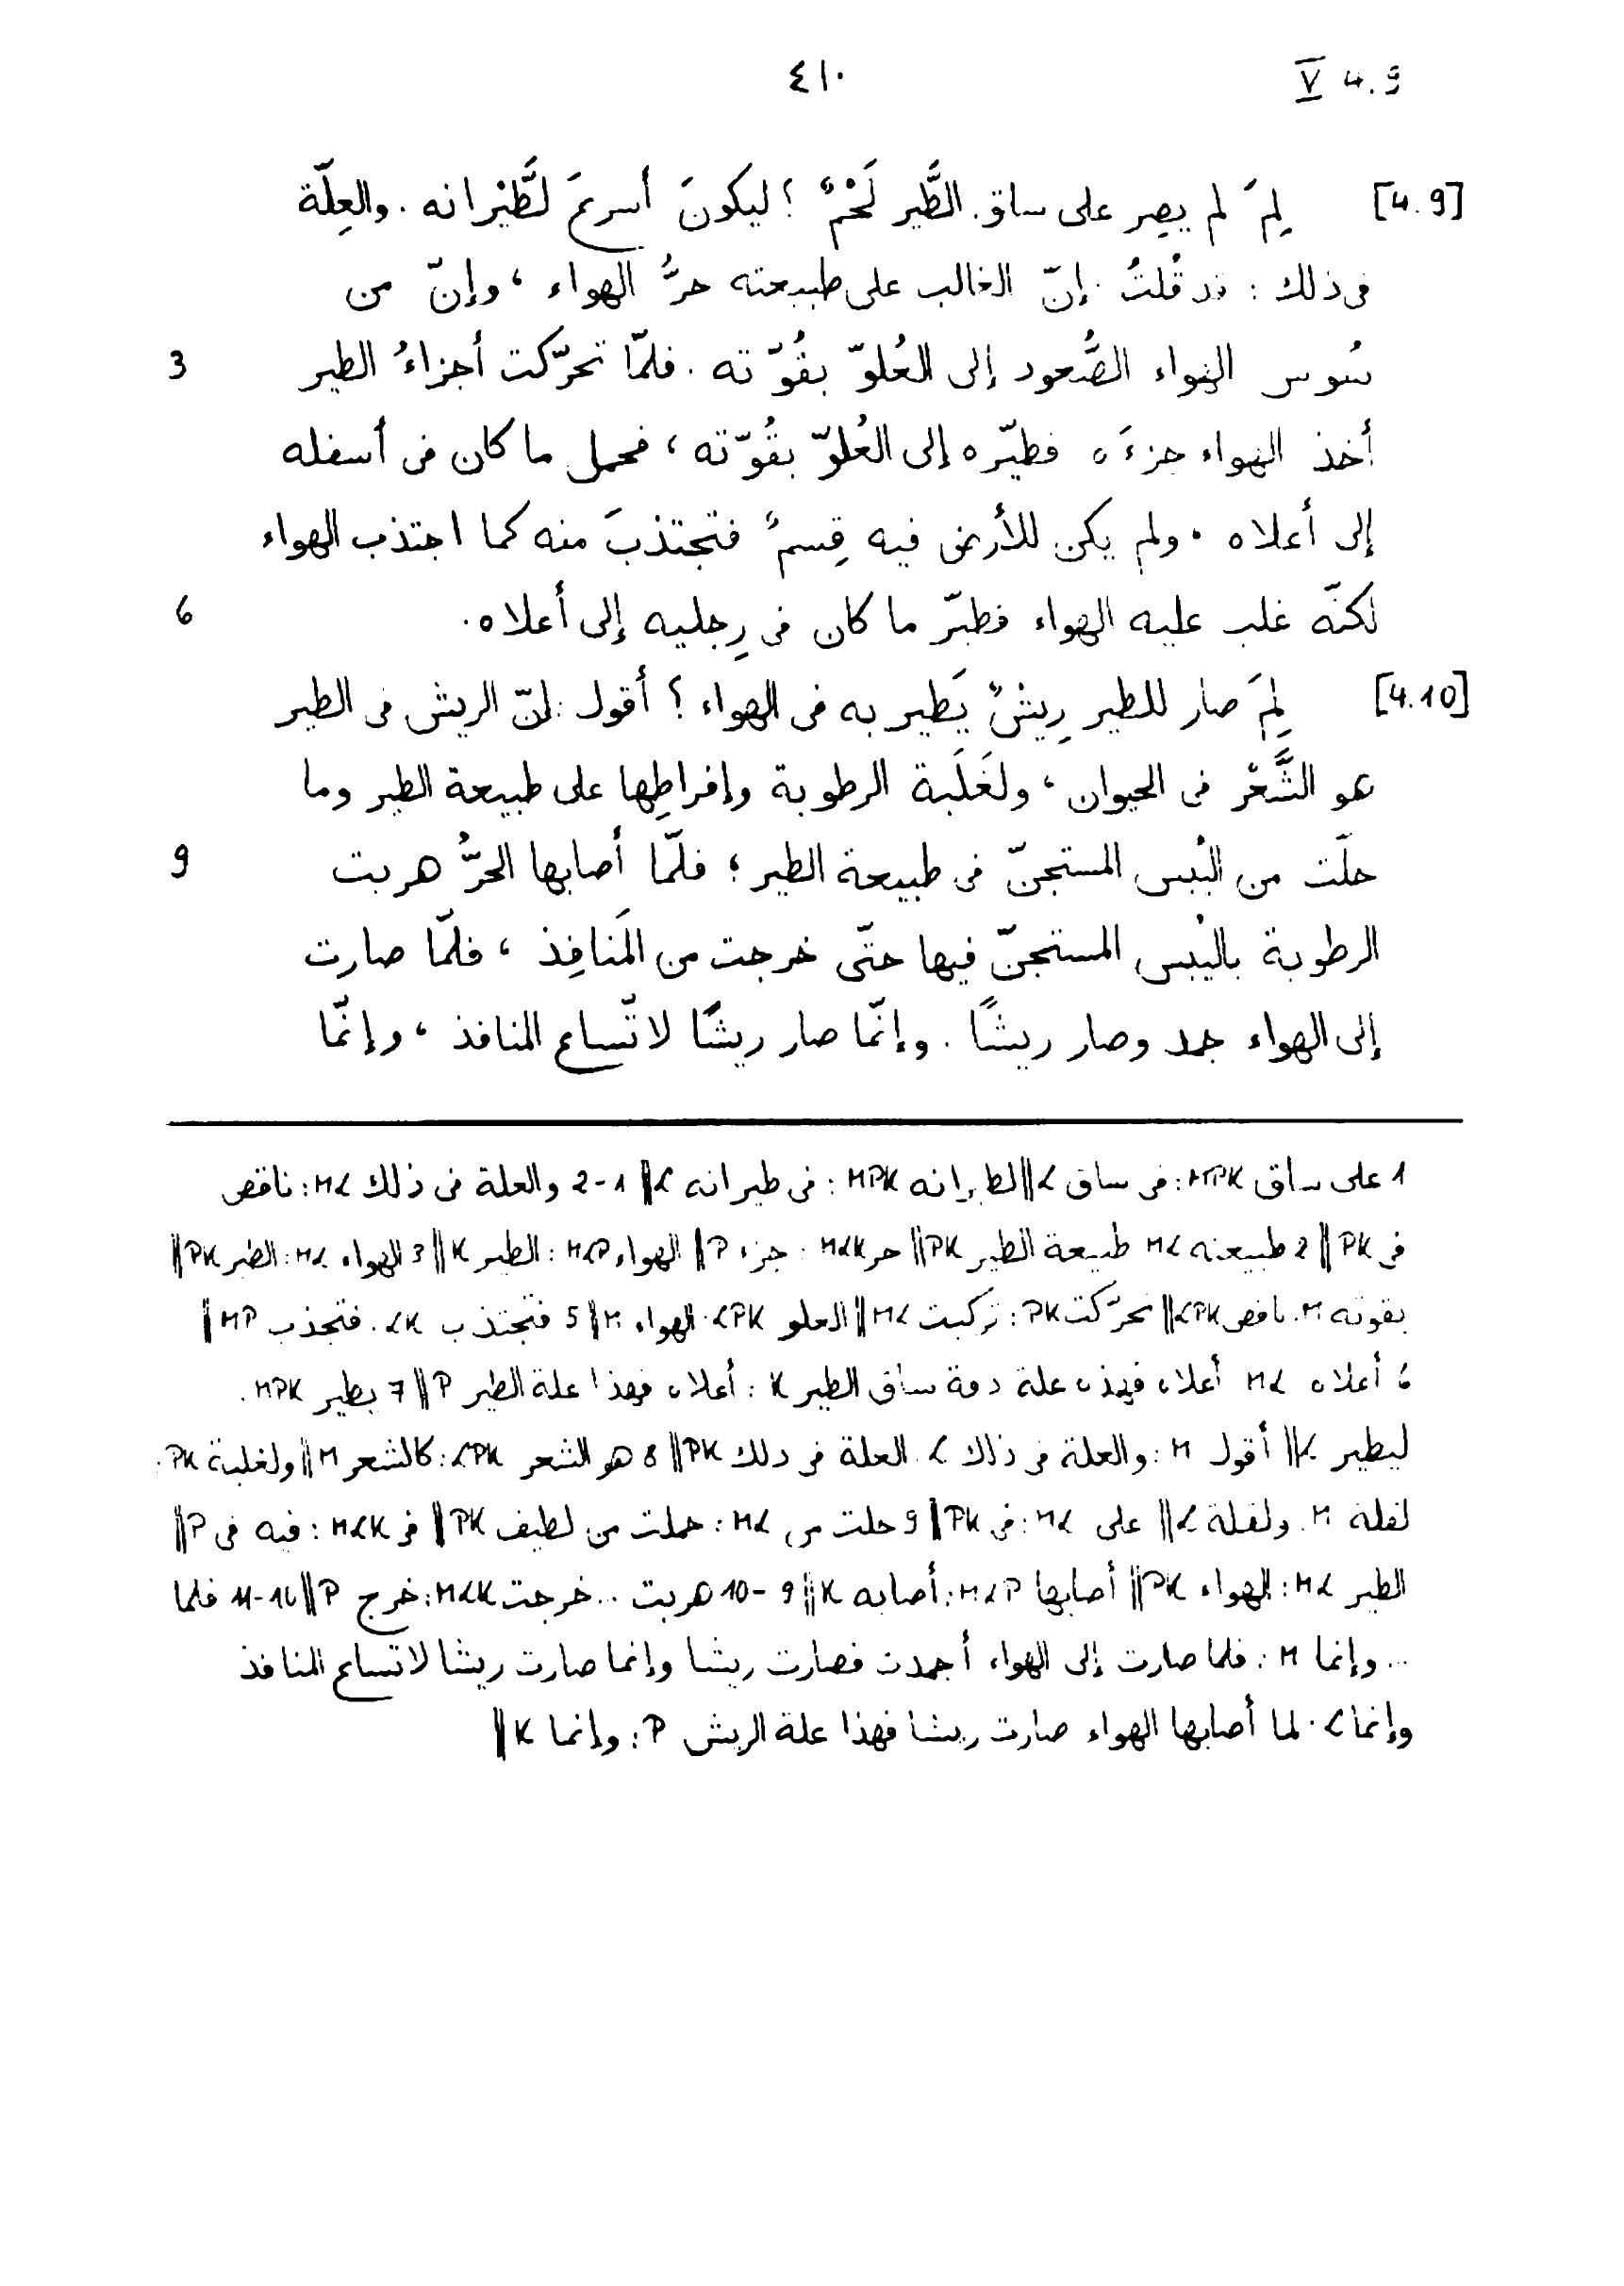 ٤١٠ V 4.9
[4.9] لِمَ لم يصِر على ساق الطَّير لَحْمٌ ؟ ليكونَ أسرعَ لطَّيْرانه . والعِلّة
فى ذلك : قد قُلتُ إنّ الغالب على طبيعته حرُّ الهواء ، وإنّ من
3 سُوس الهواء الصُّعود إلى العُلوّ بقُوّته . فلمّا تحرّكت أجزاءُ الطير
أخذ الهواء جزءَه فطيّره إلى العُلوّ بقُوّته ، فحمل ما كان فى أسفله
إلى أعلاه . ولم يكن للأرض فيه قِسمٌ فتجتذبَ منه كما اجتذب الهواء
6 لكنّه غلب عليه الهواء فطيّر ما كان فى رِجليه إلى أعلاه .
[4.10] لِمَ صار للطير رِيشٌ يَطير به فى الهواء ؟ أقول : إنّ الريش فى الطير
هو الشَّعْر فى الحيوان ، ولغَلَبة الرطوبة وإفراطِها على طبيعة الطير وما
9 حلّت من اليُبس المستجنّ فى طبيعة الطير ؛ فلمّا أصابها الحرُّ هربت
الرطوبة باليُبس المستجنّ فيها حتّى خرجت من المَنافِذ ، فلمّا صارت
إلى الهواء جمد وصار ريشًا . وإنّما صار ريشًا لاتّساع المنافذ ، وإنّما
1 على ساق MPK : فى ساق L || لطيرانه MPK : فى طيرانه L || 1-2 والعلة فى ذلك ML : ناقص
فى PK || 2 طبيعته ML طبيعة الطير PK || حر MLK : جزء P || الهواء MLP : الطير K || 3 الهواء ML : الطير PK ||
بقوته M . ناقص LPK || تحرّكت PK : تركبت ML || العلو LPK . الهواء M || 5 فتجتذب LK . فتجذب MP ||
6 أعلاه ML أعلاه فهذه علة دقة ساق الطير K : أعلاه فهذا علة الطير P || 7 يطير MPK .
ليطير L || أقول M : والعلة فى ذلك L . العلة فى ذلك PK || 8 هو الشعر LPK : كالشعر M || ولغلبة PK .
لغلة M . ولغلة L || على ML : فى PK || 9 حلت من ML : حملت من لطيف PK || فى MLK : فيه فى P ||
الطير ML : الهواء PK || أصابها MLP : أصابه K || 9-10 هربت ... خرجت MLK : خرج P || 10-11 فلما
... وإنما M : فلما صارت إلى الهواء أجمدت فصارت ريشا وإنما صارت ريشا لاتساع المنافذ
وإنما L . لما أصابها الهواء صارت ريشا فهذا علة الريش P : وإنما K ||